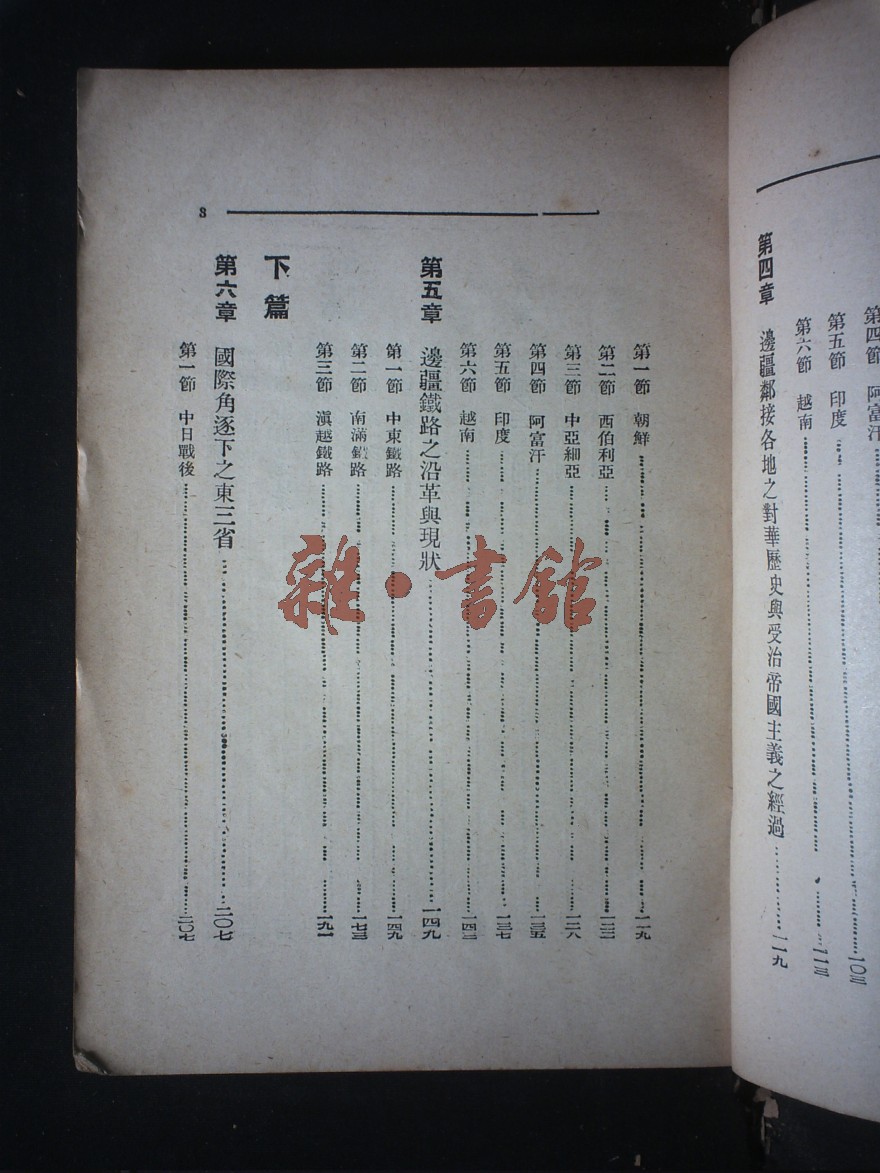 第四節 阿富汗 一〇三
第五節 印度
第六節 越南 一一三
第四章 邊疆鄰接各地之對華歷史與受治帝國主義之經過 一一九
3
第一節 朝鮮 一一九
第二節 西伯利亞
第三節 中亞細亞 一二八
第四節 阿富汗 一三五
第五節 印度 一三七
第六節 越南
第五章 邊疆鐵路之沿革與現狀 一四九
第一節 中東鐵路 一四九
第二節 南滿鐵路
第三節 滇越鐵路 一九一
下篇
第六章 國際角逐下之東三省 二〇七
第一節 中日戰後 二〇七
雜·書館